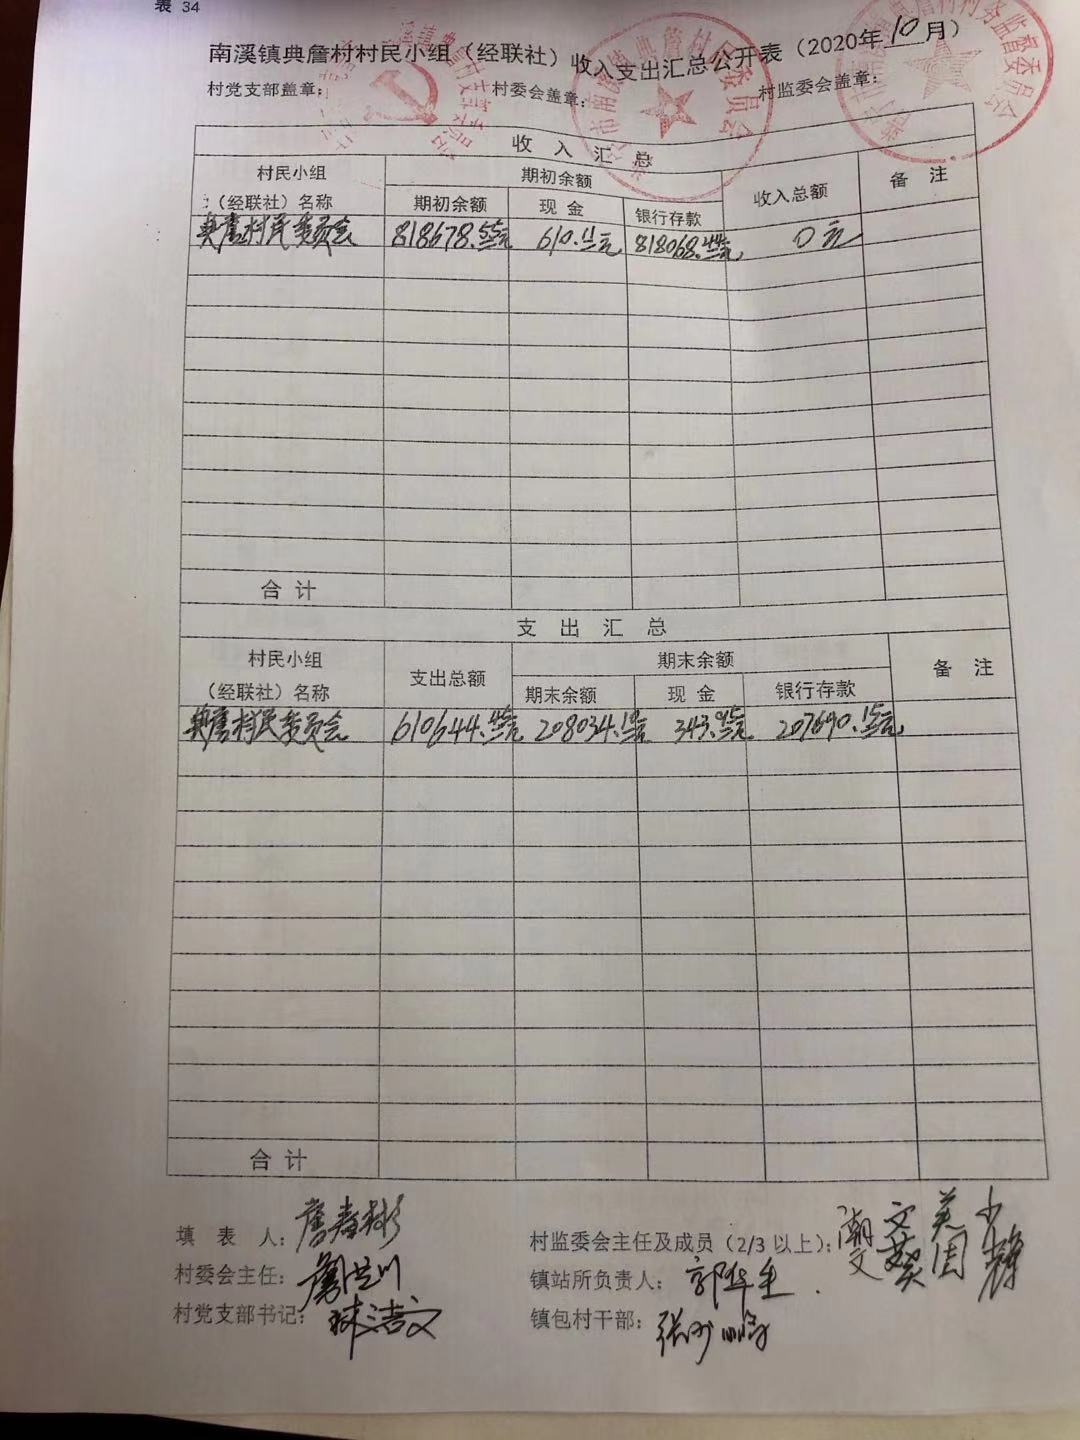 表 34
南溪镇典詹村村民小组（经联社）收入支出汇总公开表（2020年10月）
村党支部盖章： 村委会盖章： 村监委会盖章：
收 入 汇 总
村民小组 期初余额 收入总额 备 注
（经联社）名称 期初余额 现 金 银行存款
典詹村民委员会 818678.55元 610.11元 818068.44元 0元
合 计
支 出 汇 总
村民小组 支出总额 期末余额 备 注
（经联社）名称 期末余额 现 金 银行存款
典詹村民委员会 610644.45元 208034.10元 343.95元 207690.15元
合 计
填 表 人： 村监委会主任及成员（2/3 以上）：
村委会主任： 镇站所负责人：
村党支部书记： 镇包村干部：